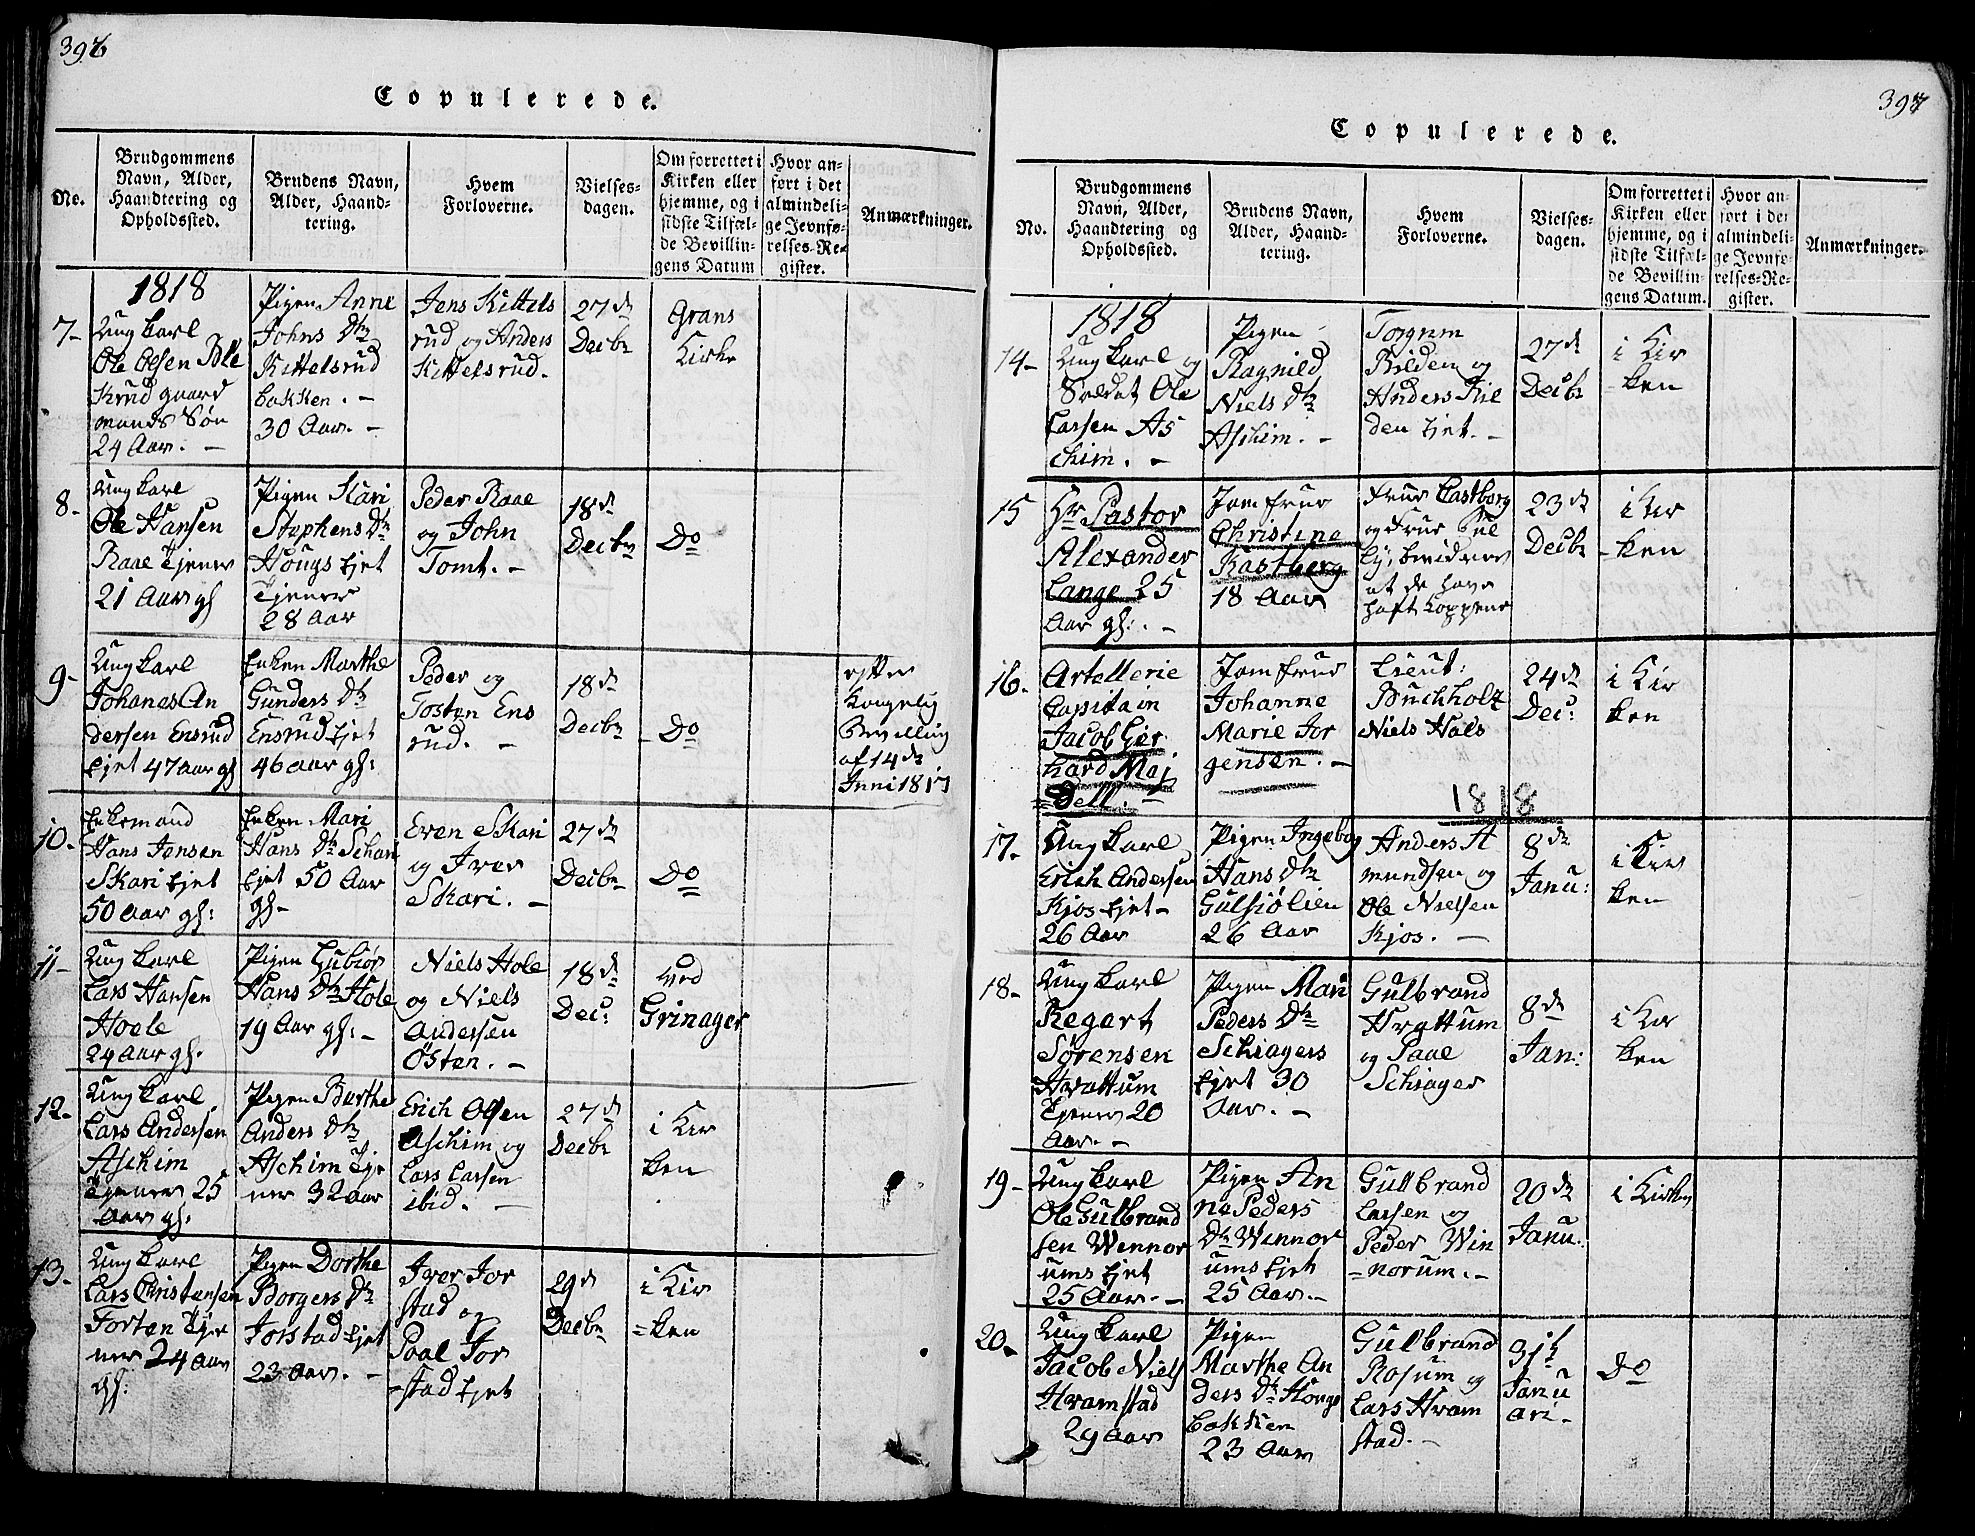 396
Copulerede.
No.
Brudgommens
Navn, Alder,
Haandtering og
Opholdssted.
Brudens Navn,
Alder, Haand-
tering.
Hvem
Forloverne.
Vielses-
dagen.
Om forrettet i
Kirken eller
hjemme, og i
sidste Tilfæl-
de Bevillin-
gens Datum
Hvor an-
ført i det
almindeli-
ge Jevnfø-
relses-Re-
gister.
Anmærkninger.
1818
7-
Ung karl
Ole Olsen
Krud gaard
mands Søn
24 Aar. -
Pigen Anne
Johns Dtr
Kittelsrud
bakken. -
30 Aar. -
Jens Kittels
rud og Anders
Kittelsrud.
27de
Decbr
Grans
Kirke
8-
Ung karl
Ole Hansen
Raae Tjener
21 Aar gl
Pigen Kari
Stephens Dtr
Hougs Ejet
Tjener
28 Aar
Peder Raae
og John
Tomt. -
18de
Decbr
Do
9-
Ung karl
Johanes An
dersen Ensrud
Ejet 47 aar gl
Enken Marthe
Gunders Dtr
Ensrud Ejet
46 aar gl:
Peder og
Tosten Ens
rud. -
18de
Decbr
Do
efter
Kongelig
Bevilling
af 14de
Juni 1817
10-
Enkemand
Hans Jensen
Skari Ejet
50 Aar gl:
Enken Mari
Hans Dtr Schari
Ejet 50 Aar
gl-
Even Skari
og Iver
Skari. -
27de
Decbr
Do
11-
Ung karl
Lars Hansen
Hoele
24 Aar gl.
Pigen Gubiør
Hans Dtr Hole
19 Aar gl: -
Niels Hole
og Niels
Andersen
Østen. -
18de
Dec:
ved
Grinager
12-
Ung karl
Lars Andersen
Aschim
Tjener 25
Aar gl:
Pigen Barthe
Anders Dtr
Aschim Tje
ner 32 aar
Erich Olsen
Aschim og
Lars Larsen
ibid. -
27de
Decbr
i Kir
ken
13-
Ung karl
Lars Christensen
Forten Tjer
ner 24 Aar
gl:
Pigen Dorthe
Borgers Dtr
Jorstad Ejet
23 aar. -
Iver Jor
stad og
Paal Jor
-stad Ejet
29de
Decbr
i Kir
=ken
397
Copulerede.
No.
Brudgommens
Navn, Alder,
Haandtering og
Opholdssted.
Brudens Navn,
Alder, Haand-
tering.
Hvem
Forloverne.
Vielses-
dagen.
Om forrettet i
Kirken eller
hjemme, og i
sidste Tilfæl-
de Bevillin-
gens Datum.
Hvor an-
ført i det
almindeli-
ge Jevnfø-
relses-Re-
gister.
Anmærkninger.
1818
14-
Ung karl og
Soldat Ole
Larsen As
chim. -
Pigen
Ragnild
Niels Dtr
Aschim. -
Torgrim
Bilden og
Anders Bil
den Ejet. -
27de
Decbr
i Kir
-ken
15
Hr Pastor
Alexander
Lange 25
Aar gl:. -
Jomfrue
Christine
Kastberg
18 Aar
Frue Castberg
og Frue
bevidner
at de have
haft Koppene
23de
Decbr
i Kir
-ken
16-
Artellerie
Capitain
Jacob Ger
hard Mej
=dell. -
Jomfrue
Johanne
Marie Jor
gensen. -
Lieut:
Buchholtz
Niels Hals
24de
Dec:
i Kir
ken
1818
17-
Ung karl
Erich Andersen
Kjos Ejet -
26 Aar
Pigen Ingeborg
Hans Dtr
Gulsiølien
26 Aar
Anders A
mundsen og
Ole Nielsen
Kjos. -
8de
Janu:
i Kir
ken
18-
Ung karl
Regart
Sørensen
Hvattum
Tjener 20
Aar. -
Pigen Mari
Peders Dtr
Schiagers
Ejet 30
Aar. -
Gulbrand
Hvattum
og Paal
Schiager
8de
Jan:
i Kir
ken
19-
Ung karl
Ole Gulbrand
sen Wennor
ums Ejet
25 Aar. -
Pigen An
ne Peders
Dtr Wennor
ums Ejet
25 Aar. -
Gulbrand
Larsen og
Peder Win
=norum. -
20de
Janu:
i Kirken
20-
Ung karl
Jacob Niels
Hramstad
29 aar
Pigen
Marthe An
ders Dtr Horge
bakken
23 Aar
Gulbrand
Rosum og
Lars Hram
stad. -
31te
Janu
ari -
Do